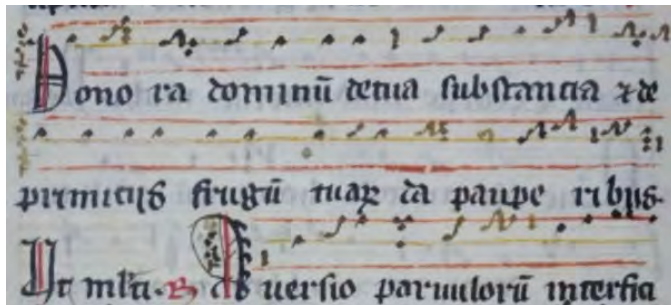 Hono ra dominū de tua substancia ⁊ de
primicijs frugū tuaꝝ da paupe ribus.
Ut A uersio paruulorū interfici